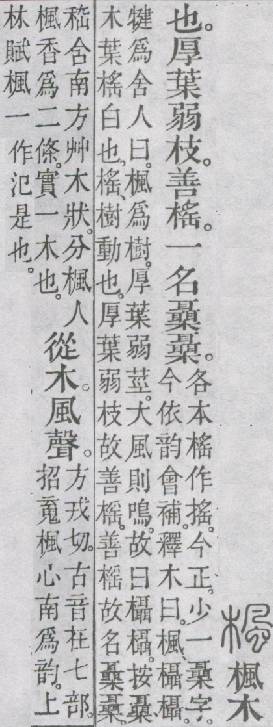 楓木
也。厚葉弱枝。善榣。一名。
各本榣作搖。今正。少一字。
今依韵會補。釋木曰。楓欇欇。
犍爲舍人曰。楓爲樹。厚葉弱莖。大風則鳴。故曰欇欇。按
木葉榣白也。榣、樹動也。厚葉弱枝故善榣。善榣故名
嵇含南方艸木狀。分楓人
楓香爲二條。實一木也。
從木。風聲。
方戎切。古音在七部。
招䰟楓心南爲韵。上
林賦楓一作氾是也。